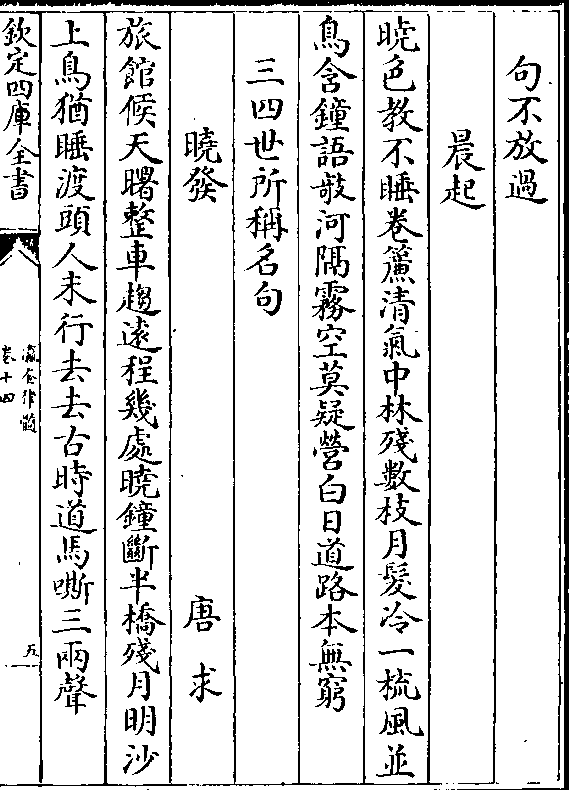 句不放過
晨起
曉色教不睡卷簾清氣中林殘數枝月髮冷一梳風並
鳥含鐘語敲河隔霧空莫疑營白日道路本無窮
三四世所稱名句
曉發
唐求
旅館候天曙整車趨遠程幾處曉鐘斷半橋殘月明沙
上鳥猶睡渡頭人未行去去古時道馬嘶三兩聲
欽定四庫全書
瀛奎律髓
卷十四
五